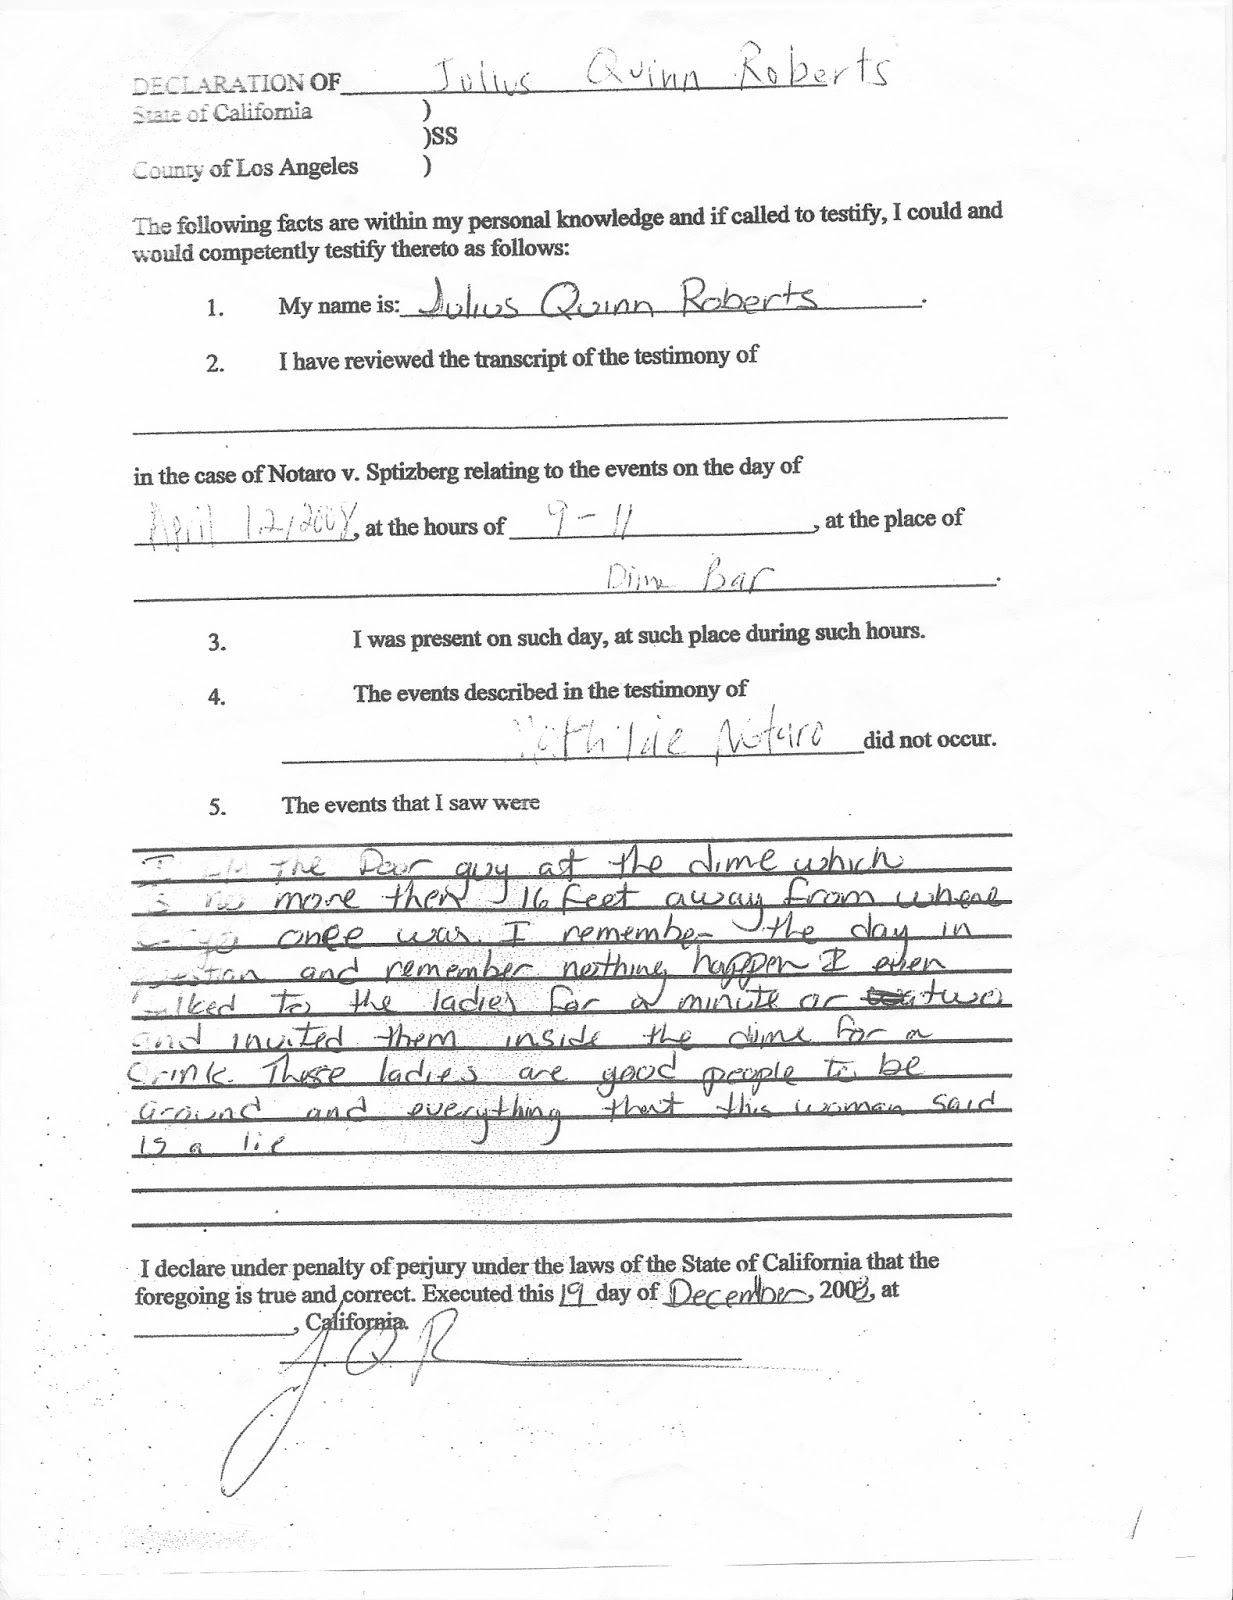 DECLARATION OF Julius Quinn Roberts
State of California )
)SS
County of Los Angeles )
The following facts are within my personal knowledge and if called to testify, I could and
would competently testify thereto as follows:
1. My name is: Julius Quinn Roberts .
2. I have reviewed the transcript of the testimony of
in the case of Notaro v. Sptizberg relating to the events on the day of
April 12/2008, at the hours of 9-11, at the place of
Dime Bar.
3. I was present on such day, at such place during such hours.
4. The events described in the testimony of
Mathilde Notaro did not occur.
5. The events that I saw were
I the Door guy at the dime which
is no more then 16 feet away from where
once was. I remember the day in
and remember nothing happen I even
talked to the ladies for a minute or two
and invited them inside the dime for a
Drink. These ladies are good people to be
around and everything that this woman said
is a lie
I declare under penalty of perjury under the laws of the State of California that the
foregoing is true and correct. Executed this 19 day of December, 2008, at
, California.
JQR
1